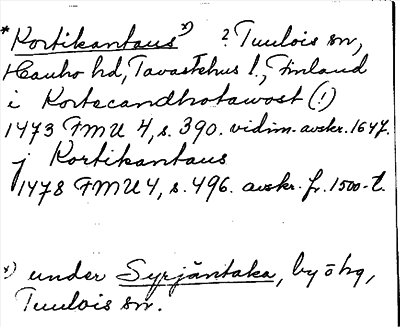 *Kortikantausˣ⁾ ? Tuulois sn,
Hauho hd, Tavastehus l., Finland
i Kortecandhotawost (!)
1473 FMU 4, s. 390. vidim. avskr. 1647.
j Kortikantaus
1478 FMU 4, s. 496. avskr. fr. 1500-t.
x) under Syrjäntaka, by o hg,
Tuulois sn.